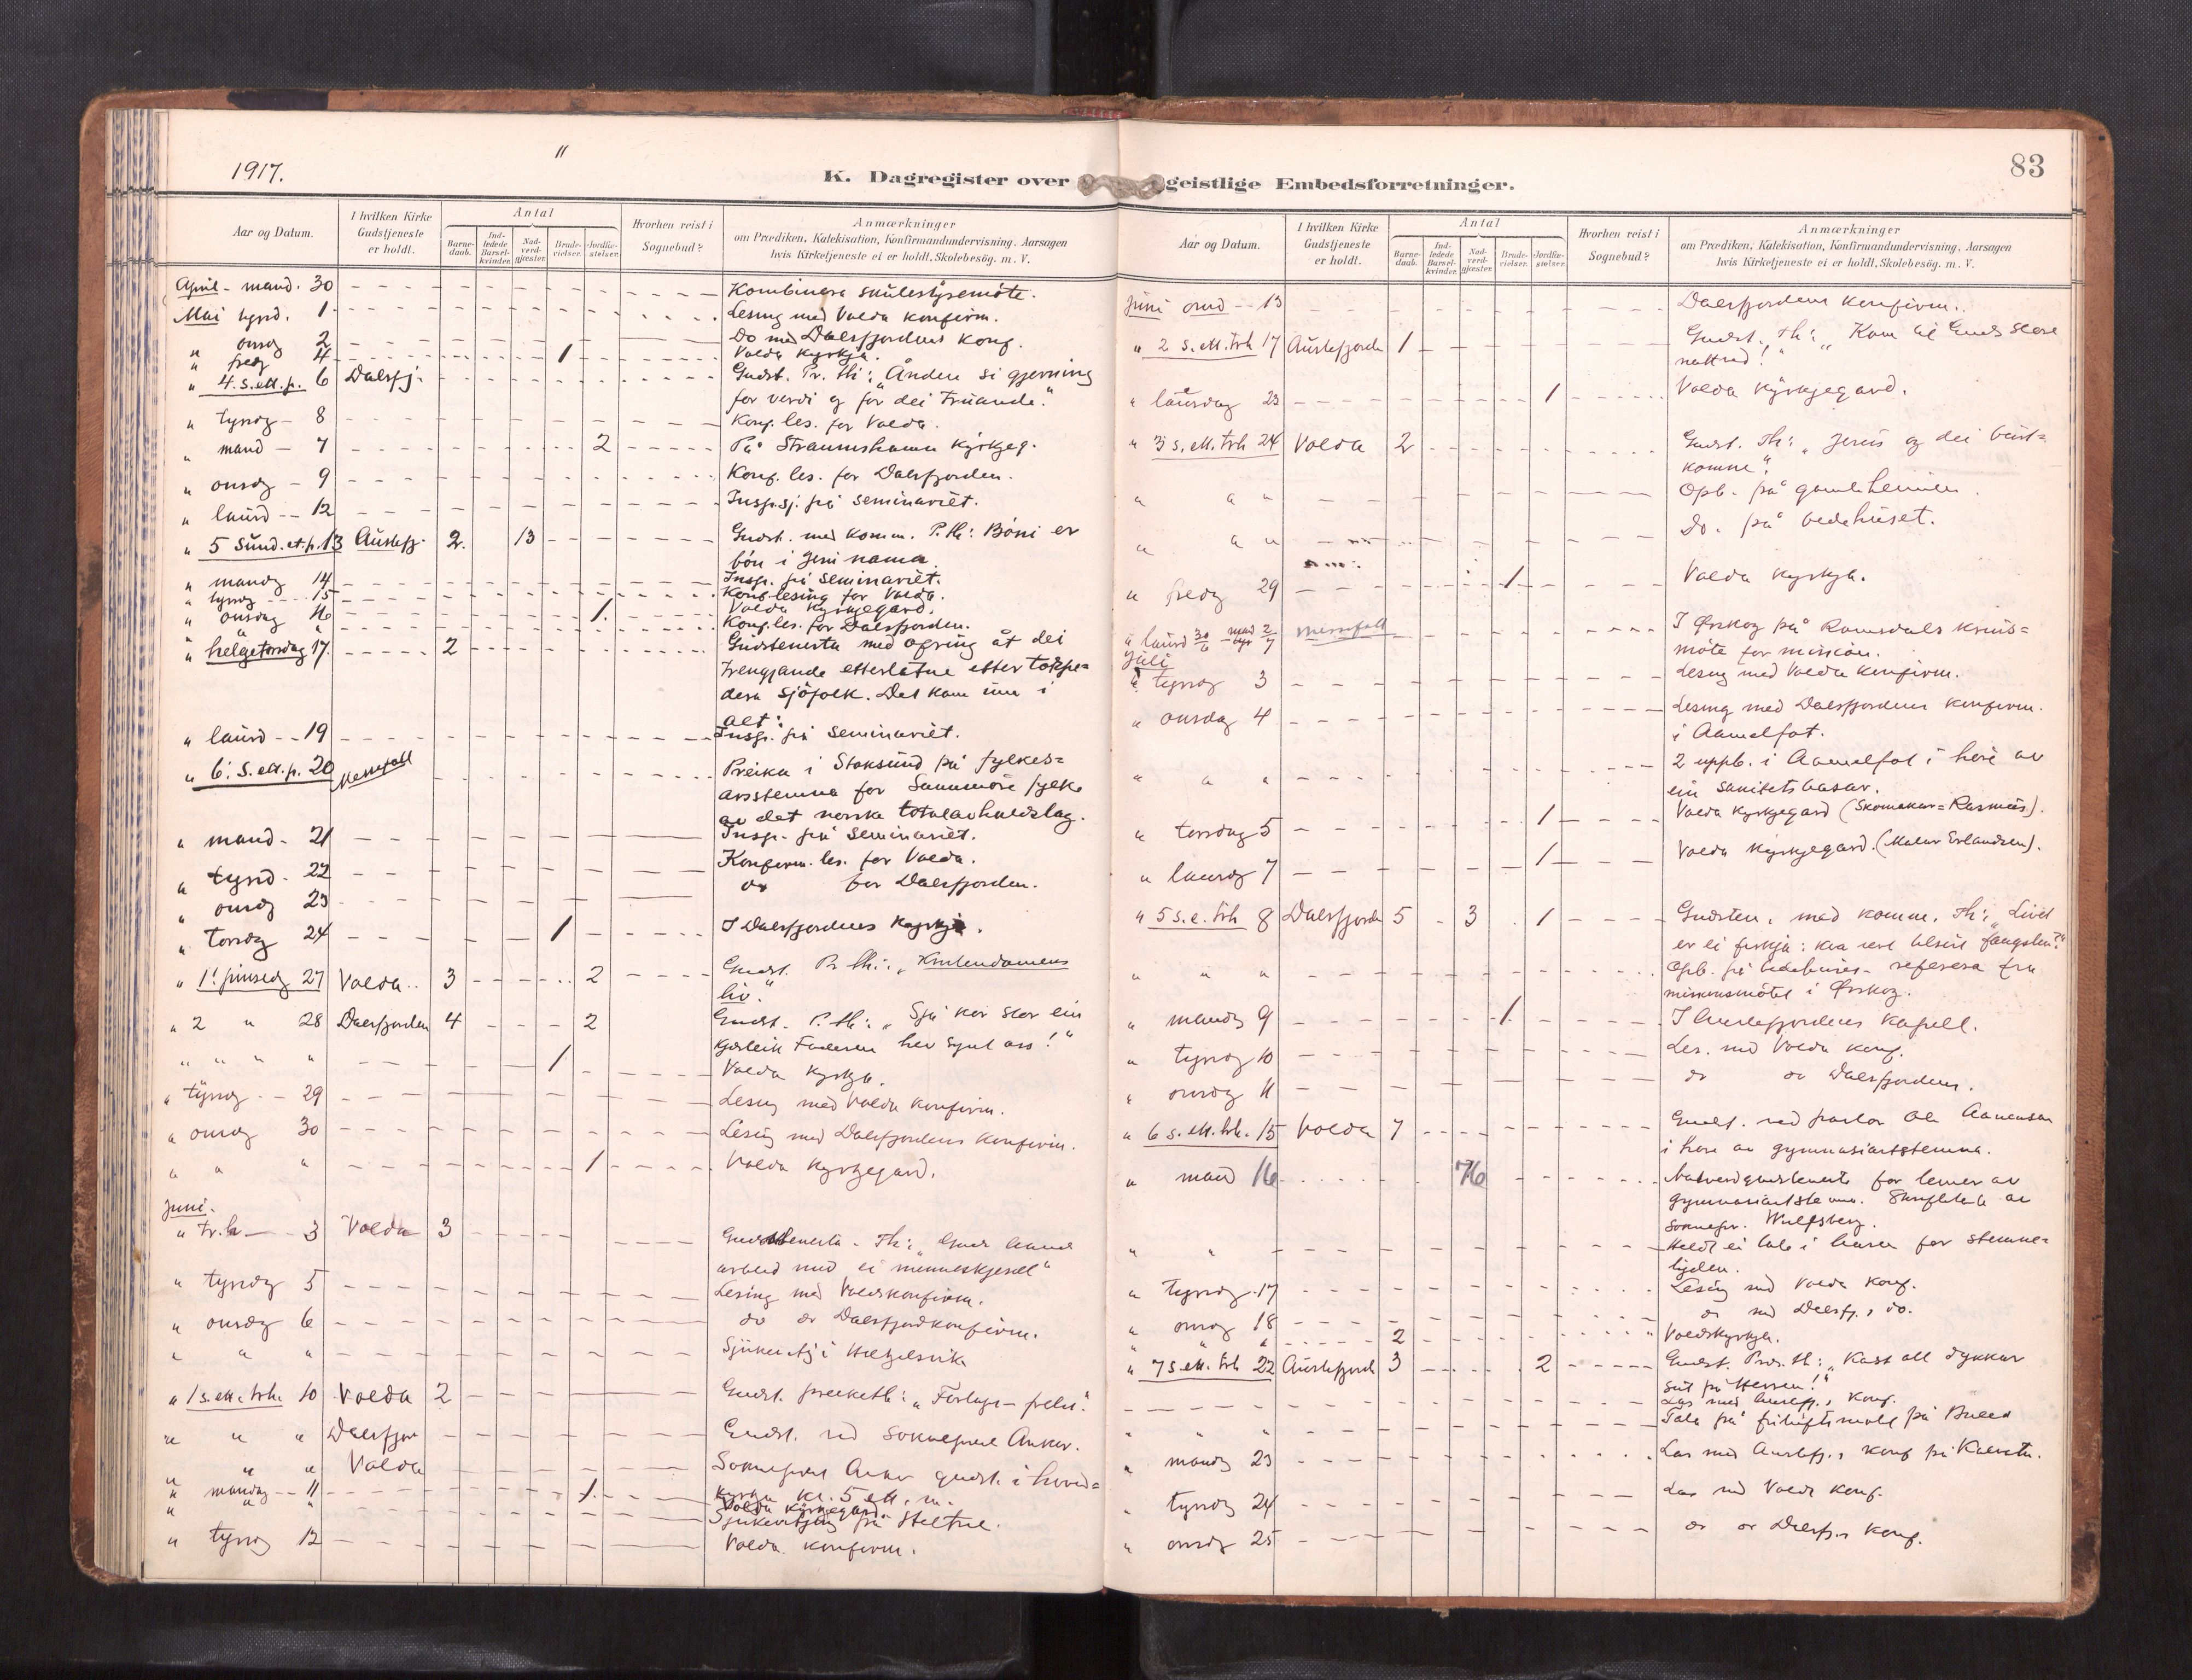 1917.
"
K. Dagregister over geistlige Embedsforretninger.
83
Aar og Datum.
I hvilken Kirke Gudstjeneste er holdt.
Antal
Barne-daab.
Ind-ledede Barsel-kvinder.
Nad-verd-gjæster.
Brude-vielser.
Jordfæ-stelser.
Hvorhen reist i Sognebud?
Anmærkninger
om Prædiken, Katekisation, Konfirmandundervisning, Aarsagen
hvis Kirketjeneste ei er holdt, Skolebesög. m. V.
April - mand. 30 Kombinera skulestyremöte.
Mai tysd. 1 Lesing med Volda konfirm.
" onsdg 2 Do med Dalsfjordens konf.
" fredg 4 1 Volda kyrkja.
" 4. s. ett. p. 6 Dalsfj. Gudst. Pr. th: "Anden si gjerning
for verdi og for dei truande."
" tysdg - 8 Konf. les. for Volda.
" mand - 7 2 På Straumshamn kyrkjeg.
" onsdg - 9 Konf. les. for Dalsfjorden.
" laurd -- 12 Insp. sj. på seminariet.
" 5 Sund. et. p. 13 Austefj. 2. 13 Gudst. med komm. P. th: Böni er
bön i Jesu namn.
" mandg 14 Insp. på seminariet.
" tysdg 15 Konf. lesing for Volda.
" onsdag 16 1. Volda kyrkjegard.
" " " Konf. les. for Dalsfjorden.
" helgetorsdag 17. 2 Gudstenesta med ofring åt dei
trengjande etterlatne etter torpe=
dera sjöfolk. Det kom inn i
alt:
" laurd -- 19 Insp. på seminariet.
" 6. s. ett. p. 20 Messefall Preika i Stoksund på fylkes=
årsstemna for Sunnmöre fylke
av det norske totalavhaldslag.
" mand - 21 Insp. på seminariet.
" tysd - 22 Konfirm. les. for Volda.
" onsdg 23 do for Dalsfjorden.
" torsdg 24 1 I Dalsfjordens kyrkja.
" 1! pinsedg 27 Volda.. 3 2 Gudst. Pr. th: "Kristendomens
liv."
" 2 " 28 Dalsfjorden 4 2 Gudst. P. th: "Sjå kor stor ein
kjærleik Faderen hev synt oss!"
" " " " 1 Volda kyrkja.
" tysdg - 29 Lesing med Volda konfirm.
" onsdg 30 Lesing med Dalsfjordens konfirm.
" " " 1 Volda kyrkjegard.
Juni.
" tr. h - 3 Volda 3 Gudstenesta - Th: "Guds
arbeid med ei menneskjesæl"
" tysdg 5 Lesing med Voldskonfirm.
" onsdg 6 do do Dalsfjordkonfirm.
" " " i
" 1 s. ett. trh. 10 Volda 2 Gudst. preiketh: "Fortapt - frelst."
" " " Dalsfjor Gudst. ved sokneprest Anker.
" " " Volda Sokneprest Anker gudst. i hovud=
kyrkja kl. 5 ett. m.
" mandag -- 11 1. Volda kyrkjegard.
" " " på
" tysdg 12 Volda konfirm.
Aar og Datum.
I hvilken Kirke Gudstjeneste er holdt.
Antal
Barne-daab.
Ind-ledede Barsel-kvinder.
Nad-verd-gjæster.
Brude-vielser.
Jordfæ-stelser.
Hvorhen reist i Sognebud?
Anmærkninger
om Prædiken, Katekisation, Konfirmandundervisning, Aarsagen
hvis Kirketjeneste ei er holdt, Skolebesög. m. V.
Juni onsd -- 13 Dalsfjordens konfirm..
" 2 s. ett. trh 17 Austefjorde 1 Gudst. th: "Kom til Guds store
nattverd!"
" laurdag 23 1 Volda kyrkjegard.
" 3 s. ett. trh 24 Volda 2 Gudst. Th: "Jesus og dei burt=
komne".
" " " Opb. på gamleheimen.
" " " Do. på bedehuset.
" fredg 29 1 Volda kyrkja.
" laurd 30/6 - 2/7 messefall I Örskog på Romsdals krins=
möte for misjon.
Juli
" tysdg 3 Lesing med Volda konfirm.
" onsdag 4 Lesing med Dalsfjordens konfirm.
i Aamelfot.
" " " 2 uppb. i Aamelfot i höve av
ein sanitetsbasar.
" torsdag 5 1 Volda kyrkjegard (Skomakar=Rasmus).
" laurdg 7 1 Volda kyrkjegard. (Malar Erlandsen).
" 5 s. e. trh 8 Dalsfjorde 5 3 1 Gudsten. med komm. Th: "Livet
er ei fiskja: kva vert tilsist fangsten?"
" " " Opb. på bedehuset - referera fra
misionsmötet i Örskog.
" mandg 9 1 I Austefjordens kapell.
" tysdg 10 Les. med Volda konf.
" onsdg 11 do do Dalsfjordens.
" 6 s. ett. trh. 15 Volda 7 Gudst. ved pastor Ole
i höve av gymnasiartstemna.
" mand 16 76 Natverdgudstenesta for lemer av
gymnasiartstemna. Skriftetale av
soknepr. Wulfsberg.
" " Heldt ei tale i for stemne=
lyden.
" tysdg 17 Lesing med Volda konf.
" onsdg 18 do med Dalsfj.s do.
" " " 2 Voldskyrkja.
" 7 s. ett. trh 22 Austefjord 3 2 Gudst. Prei. th: "Kast all dykkar
sut på Herren!"
Las med Austefj.s konf.
" " " Tala på friluftsmöte på
" mandg 23 Las med Austefj.s konf på
" tysdg 24 Las med Volda konf.
" onsdg 25 do do Dalsfj.s konf.